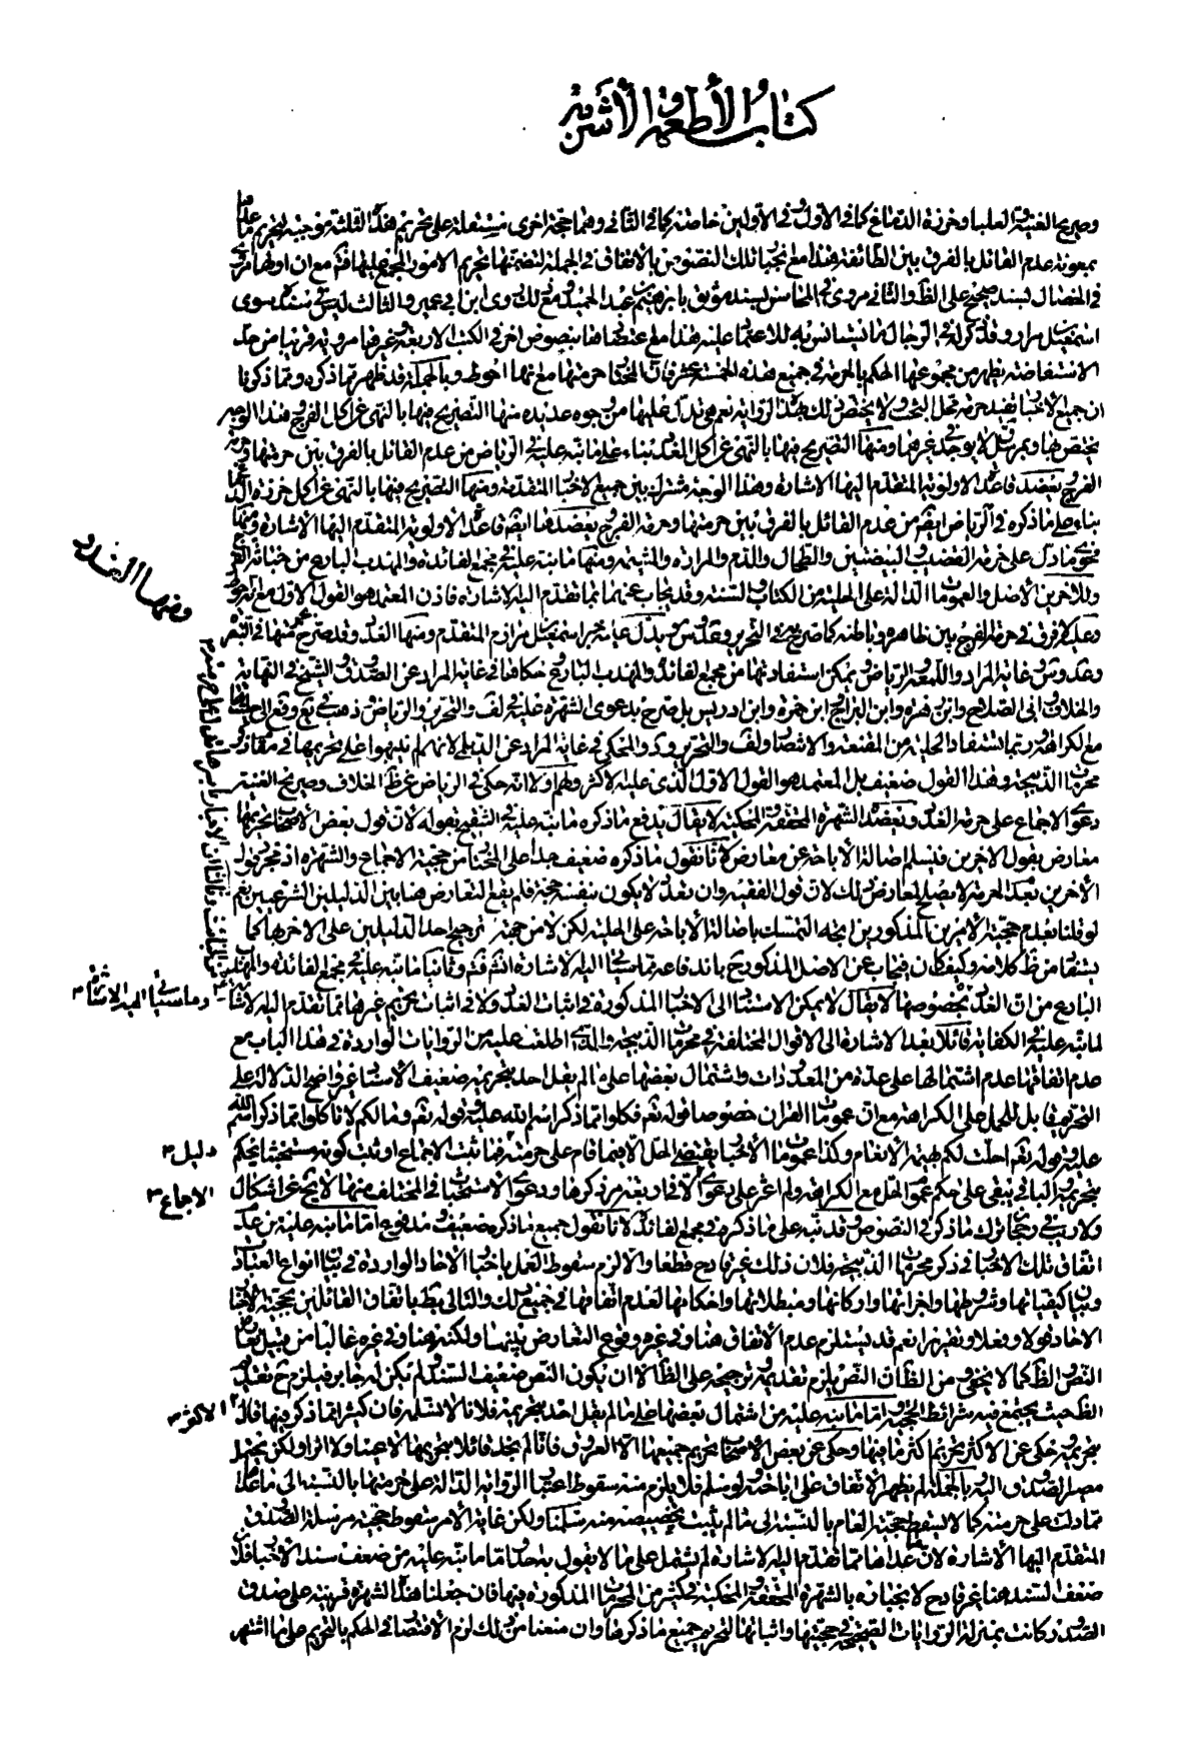 كتاب الأطعمة والأشربة
وصريح الغنية العليا وخرزة الدماغ كما في الاول في الاولين خاصة كما في الثاني وهما حجة اخرى مستقلة على تحريم هذه الثلثة موجبة لتحريم ما علا
بمعونة عدم القائل بالفرق بين الطائفة هذا مع نجبا تلك النصوص بالاتفاق في الجملة لتضمنها تحريم الامور المجمع عليها فتم مع ان اولها مروي
في الخصال بسند صحيح على الظ والثاني مروي في المحاسن بسند موثق بابرهيم بن عبد الحميد ومع ذلك روى ابن ابي عمير والثالث ليس في سنده سوى
اسمعيل مرار وقد ذكر له في الرجال ما يستانس به للاعتماد عليه هذا مع اعتضادها بنصوص اخر في الكتب الاربعة وغيرها مروية قريبا من حد
الاستفاضة يظهر من مجموعها الحكم بالحرمة في جميع هذه الخمسة عشر فان المختار حرمتها مع انها احوط وبالجملة فقد ظهر مما ذكره ومما ذكرنا
ان جميع الاخبار يفيد حرمة محل البحث ولا يختص ذلك بهذه الرواية نعم هي تدل عليها من وجوه عديدة منها التصريح فيها بالنهي عن اكل الفرج هذا الوجه
يختص بها وبمرسل لا يوجد في غيرهما ومنها التصريح فيها بالنهي عن اكل الغدد بناء على ما نبه عليه في الرياض من عدم القائل بالفرق بين حرمتها وحرمة
الفرج يعضده قاعدة الاولوية المتقدم اليها الاشارة وهذا الوجه مشترك بين جميع الاخبار المتقدمة ومنها التصريح فيها بالنهي عن اكل خرزة الدماغ
بناء على ما ذكره في الرياض ايضا من عدم القائل بالفرق بين حرمتها وحرمة الفرج يعضدها ايضا قاعدة الاولوية المتقدم اليها الاشارة ومنها
فحوى ما دل على حرمة القضيب والبيضتين والطحال والدم والمرارة والمثيمة ومنها ما نبه عليه في مجمع الفائدة والمهذب البارع من خباثة الفرج
وللاخرين الأصل والعمومات الدالة على الحلية من الكتاب والسنة وقد يجاب عنهما بما تقدم اليه الاشارة فاذن المعتمد هو القول الاول مع انه احوط
وعليه لا فرق في حرمة الفرج بين ظاهره وباطنه كما صرح به في التحرير وعد وس يدل عليه خبر اسمعيل مرار المتقدم ومنها الغدد وقد صرح بحرمتها في التبصرة
وعد وس غاية المراد واللمعة والرياض ويمكن استفادتها من مجمع الفائدة والمهذب البارع حكاها في غاية المراد عن الصدوق والشيخ في النهاية
والخلاف وابي الصلاح وابن زهرة وابن البراج وابن حمزة وابن ادريس بل صرح بدعوى الشهرة عليه في لف والتحرير والرياض وذهب في فع وقع الى حليتها
مع الكراهة وربما يستفاد الحلية من المقنعة والانتصار ولف والتحرير وكد والمحكي في غاية المراد عن الديلمي لانهم لم ينبهوا على تحريمها في مقام ذكر
محرمات الذبيحة وهذا القول ضعيف بل المعتمد هو القول الاول الذي عليه الاكثر ولهم اولا انه حكي في الرياض عن ظ الخلاف وصريح الغنية
دعوى الاجماع على حرمة الغدد وتعضده الشهرة المحققة والمحكية لا يقال يدفع ما ذكره ما نبه عليه في التنقيح بقوله لان قول بعض الأصحاب بتحريمها
معارض بقول الاخرين فيسلم اصالة الأباحة عن معارض لانا نقول ما ذكره ضعيف جدا على المختار من حجية الاجماع والشهرة اذ مجرد قول
الأخرين بعدم الحرمة لا يصلح لمعارض ذلك لان قول الفقيه وان تعدد لا يكون بنفسه حجة فلم يقع التعارض هنا بين الدليلين الشرعيين نعم
لو قلنا بعدم حجية الأمرين المذكورين اتجه التمسك باصالة الأباحة على الحلية لكن لا من جهة ترجيح احد الدليلين على الاخر بها كما
يستفاد من ظ كلامه وكيف كان فيجاب عن الاصل المذكور ح باندفاعه بما سياتي اليه الاشارة انش فتم وثانيا ما نبه عليه في مجمع الفائدة والمهذب
البارع من ان الغدد بخصوصها لا يقال لا يمكن الاستناد الى الاخبار المذكورة في اثبات الغدد ولا في اثبات تحريم غيرها مما تقدم اليه الاشارة
لما نبه عليه في الكفاية قائلا بعد الاشارة الى الاقوال المختلفة في محرمات الذبيحة والذي اطلعت عليه من الروايات الواردة في هذا الباب مع
عدم اتفاقها عدم اشتمالها على عدة من المعدودات واشتمال بعضها على ما لم يقل احد بتحريمه ضعيف الاسناد غير واضح الدلالة على
التحريم قابل للحمل على الكراهة مع ان عمومات القران خصوصا قوله تعم فكلوا مما ذكر اسم الله عليه وقوله تعم وما لكم لا تاكلوا مما ذكر اسم الله
عليه وقوله تعم احلت لكم بهيمة الأنعام وكذا عمومات الأخبار يقتضي الحل الا فيما قام على حرمته فما ثبت الاجماع او ثبت كونه مستخبثا يحكم
بتحريمه والباقي يبقى على حكم عموم الحل مع الكراهة ولم اعثر على دعوى الاتفاق بعد من ذكرها ودعوى الاستخباث في المختلف منها لا يخ عن اشكال
ولا ريب في رجحان ترك ما ذكر في النصوص وقد نبه على ما ذكره في مجمع الفائدة لانا نقول جميع ما ذكره ضعيف ومدفوع اما ما نبه عليه من عدم
اتفاق تلك الاخبار في ذكر محرمات الذبيحة فلان ذلك غير قادح قطعا والا لزم سقوط العمل باخبار الاحاد الواردة في بيان انواع العبادات
وبيان كيفياتها وشرائطها واجزائها واركانها ومبطلاتها واحكامها لعدم اتفاقها في جميع ذلك والتالي بط باتفاق القائلين بحجية الأخبار
الاحاد قولا وفعلا وتقريرا نعم قد يستلزم عدم الأتفاق هنا وفي غيره وقوع التعارض بينهما ولكنه هنا وفي غيره غالبا من قبيل تعارض
النص والظ كما لا يخفى ومن الظ ان النص يلزم تقديمه وترجيحه على الظ الا ان يكون النص ضعيف السند ولم يكن له جابر فيلزم ح تقديم
الظ حيث يجتمع فيه شرائط الحجية واما ما نبه عليه من اشتمال بعضها على ما لم يقل احد بتحريمه فلانا لا نسلمه فان كثيرا مما ذكر فيها قال
بتحريمه وحكي عن الاكثر تحريم اكثر ما فيها وحكي عن بعض الأصحاب تحريم جميعها الا العروق فانا لم نجد قائلا بتحريمها لا عينا ولا اثرا ولكن يحتمل
مصير الصدوق اليه بالجملة لم يظهر الأتفاق على اباحته ولو سلم فلا يلزم منه سقوط اعتبار الرواية الدالة على حرمتها بالنسبة الى ما عدا
مما دلت على حرمته كما لا يسقط حجية العام بالنسبة الى ما لم يثبت تخصيصه منه سلمنا ولكن غاية الأمر سقوط حجية مرسلة الصدوق
المتقدم اليها الأشارة لان ما عداها مما تقدم اليه الاشارة لم يشتمل على ما لا يقول به احد واما ما نبه عليه من ضعف سند الاخبار فلان
ضعف السند هنا غير قادح لانجباره بالشهرة المحققة والمحكية في كثير من المحرمات المذكورة فيها فان جعلنا هذه الشهرة قرينة على صدق
الصدور كانت بمنزلة الروايات الصحيحة في حجيتها واثباتها لتحريم جميع ما ذكر فيها وان منعنا من ذلك لزم الاقتصار في الحكم بالتحريم على ما اشتهر
ومنها الغدد
وما سياتي اليه الاشارة
دليل
الاجماع
الاكثر